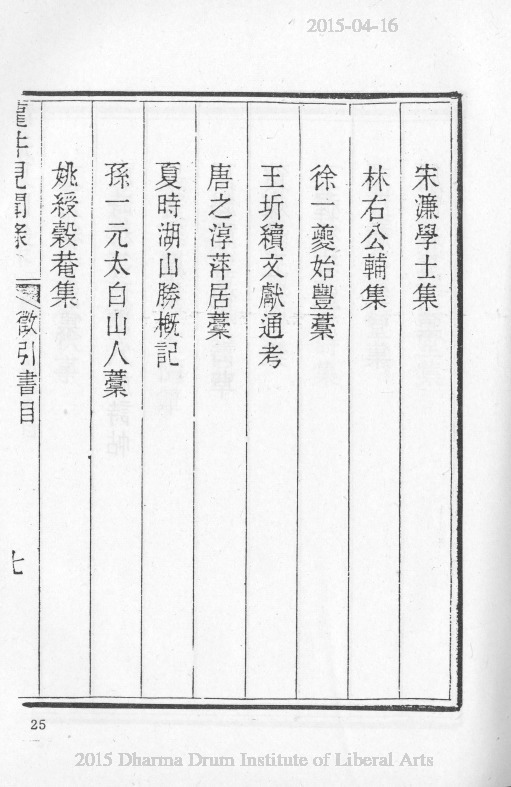 2015-04-16
宋濂學士集
林右公輔集
徐一夔始豐藁
王圻續文獻通考
唐之淳萍居藁
夏時湖山勝概記
孫一元太白山人藁
姚綬穀菴集
龍井見聞錄
徵引書目
七
25
2015 Dharma Drum Institute of Liberal Arts